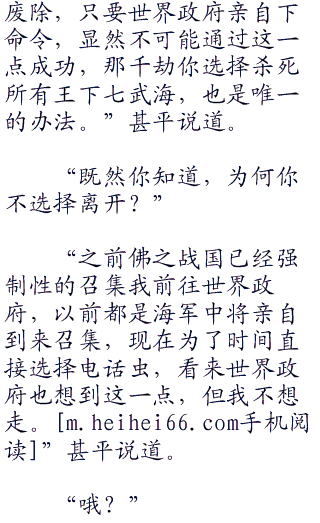 废除，只要世界政府亲自下
命令，显然不可能通过这一
点成功，那千劫你选择杀死
所有王下七武海，也是唯一
的办法。”甚平说道。
“既然你知道，为何你
不选择离开？”
“之前佛之战国已经强
制性的召集我前往世界政
府，以前都是海军中将亲自
到来召集，现在为了时间直
接选择电话虫，看来世界政
府也想到这一点，但我不想
走。[m.heihei66.com手机阅
读]”甚平说道。
“哦？”